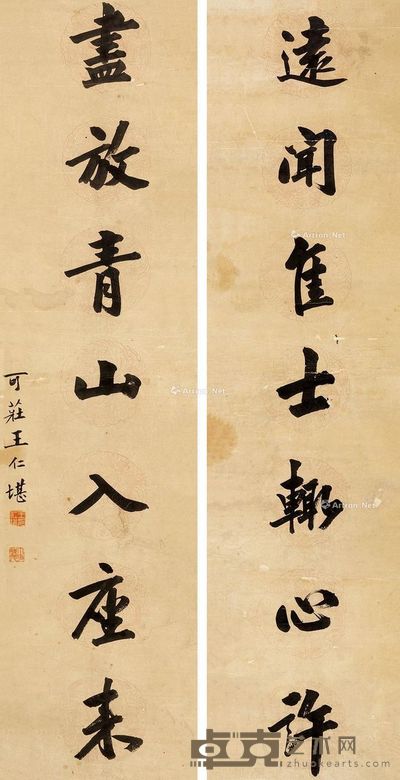 遠聞佳士輒心許
盡放青山入座來
可莊王仁堪
Artron.Net
Artron.Net
Artron.Net
Artron.Net
卓克艺术网
zhuokearts.com